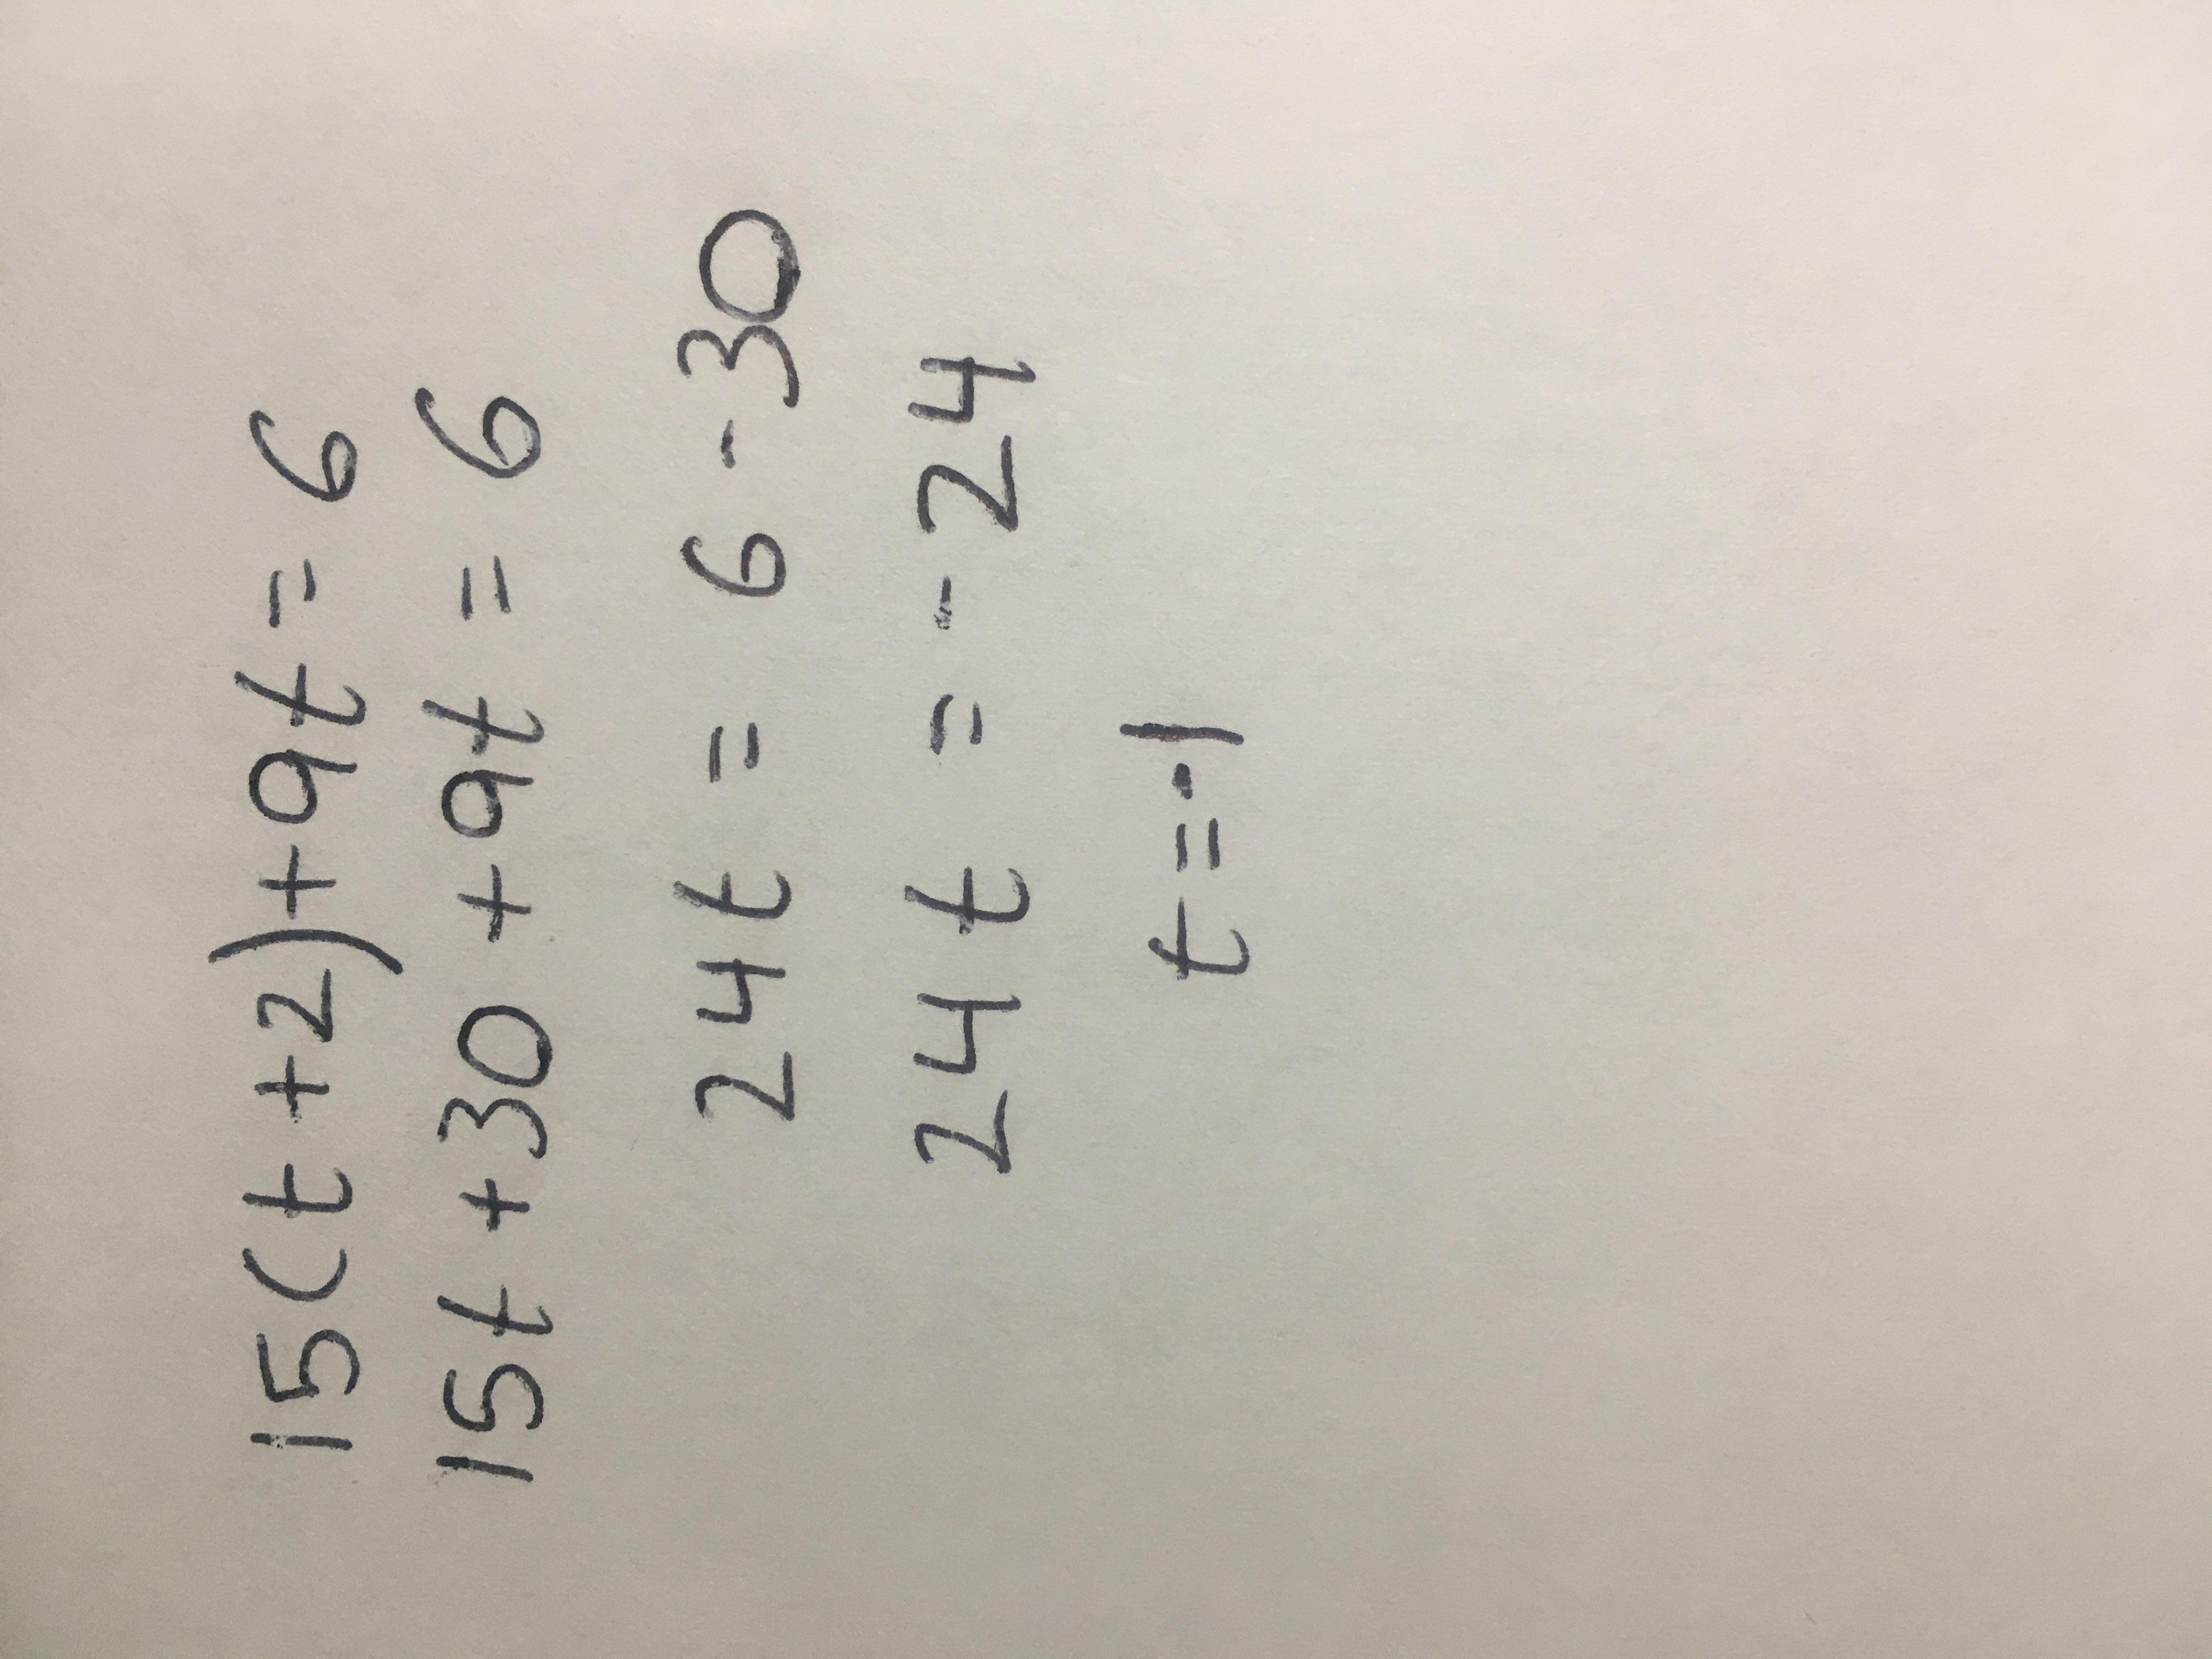 15(t+2)+9t=6
15t+30+9t=6
24t=6-30
24t=-24
t=-1